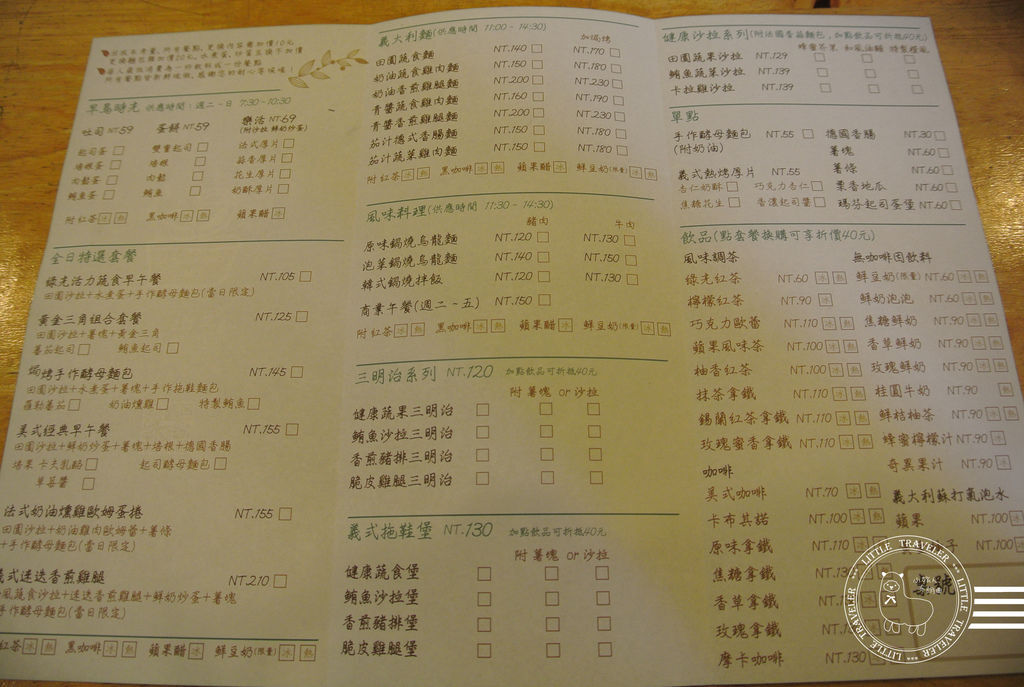 早鳥時光 供應時間:週二~日 7:30-10:30
吐司 NT.59 蛋餅 NT.59 樂活 NT.69
(附沙拉 鮮奶炒蛋)
起司蛋 雙重起司 法式厚片
培根蛋 培根 蒜香厚片
肉鬆蛋 肉鬆 花生厚片
鮪魚蛋 鮪魚 奶酥厚片
附紅茶 冰 熱 黑咖啡 冰 熱 蘋果醋 冰
全日特選套餐
綠光活力蔬食早午餐 NT.105
田園沙拉+水煮蛋+手作酵母麵包(當日限定)
黃金三角組合套餐 NT.125
田園沙拉+薯塊+黃金三角
蕃茄起司 鮪魚起司
焗烤手作酵母麵包 NT.145
田園沙拉+水煮蛋+薯塊+手作拖鞋麵包
羅勒蕃茄 奶油燻雞 特製鮪魚
美式經典早午餐 NT.155
田園沙拉+鮮奶炒蛋+薯塊+培根+德國香腸
培果 卡夫乳酪 起司酵母麵包
草莓醬
法式奶油燻雞歐姆蛋捲 NT.155
田園沙拉+奶油雞肉歐姆蕾+薯條
+手作酵母麵包(當日限定)
義式迷迭香煎雞腿 NT.210
風蔬食沙拉+迷迭香煎雞腿+鮮奶炒蛋+薯塊
手作酵母麵包(當日限定)
紅茶 冰 熱 黑咖啡 冰 熱 蘋果醋 冰 鮮豆奶(限量) 冰 熱
義大利麵(供應時間 11:00 - 14:30) 加焗烤
田園蔬食麵 NT.140 NT.170
奶油蔬食雞肉麵 NT.150 NT.180
奶油香煎雞腿麵 NT.200 NT.230
青醬蔬食雞肉麵 NT.160 NT.190
青醬香煎雞腿麵 NT.200 NT.230
茄汁德式香腸麵 NT.150 NT.180
茄汁蔬菜雞肉麵 NT.150 NT.180
附紅茶 冰 熱 黑咖啡 冰 熱 蘋果醋 冰 鮮豆奶(限量) 冰 熱
風味料理(供應時間 11:30 - 14:30)
豬肉 牛肉
原味鍋燒烏龍麵 NT.120 NT.130
泡菜鍋燒烏龍麵 NT.140 NT.150
韓式鍋燒拌飯 NT.120 NT.130
商業午餐(週二~五) NT.150
附紅茶 冰 熱 黑咖啡 冰 熱 蘋果醋 冰 鮮豆奶(限量) 冰 熱
三明治系列 NT.120 加點飲品可折抵40元
附 薯塊 or 沙拉
健康蔬果三明治
鮪魚沙拉三明治
香煎豬排三明治
脆皮雞腿三明治
義式拖鞋堡 NT.130 加點飲品可折抵40元
附 薯塊 or 沙拉
健康蔬食堡
鮪魚沙拉堡
香煎豬排堡
脆皮雞腿堡
健康沙拉系列(附法國香蒜麵包,加點飲品可折抵40元)
蜂蜜芥茉 和風油醋
田園蔬果沙拉 NT.129
鮪魚蔬菜沙拉 NT.139
卡拉雞沙拉 NT.139
單點
手作酵母麵包 NT.55 德國香腸 NT.30
(附奶油) 薯塊 NT.60
義式熱烤厚片 NT.55 薯條 NT.60
杏仁奶酥 巧克力杏仁 栗香地瓜 NT.60
焦糖花生 香濃起司醬 瑪芬起司蛋堡 NT.60
飲品(點套餐換購可享折價40元)
風味調茶 無咖啡因飲料
綠光紅茶 NT.60 冰 熱 鮮豆奶(限量) NT.60 冰 熱
檸檬紅茶 NT.90 冰 鮮奶泡泡 NT.60 冰 熱
巧克力歐蕾 NT.110 冰 熱 焦糖鮮奶 NT.90 冰 熱
蘋果風味茶 NT.100 冰 熱 香草鮮奶 NT.90 冰 熱
柚香紅茶 NT.100 冰 熱 玫瑰鮮奶 NT.90 冰 熱
抹茶拿鐵 NT.110 冰 熱 桂圓牛奶 NT.90 熱
錫蘭紅茶拿鐵 NT.110 冰 熱 鮮桔柚茶 NT.90 冰 熱
玫瑰蜜香拿鐵 NT.110 冰 熱 蜂蜜檸檬汁 NT.90 冰
咖啡 奇異果汁 NT.90 冰
美式咖啡 NT.70 冰 熱 義大利蘇打氣泡水
卡布其諾 NT.100 冰 熱 蘋果 NT.100 冰
原味拿鐵 NT.110 冰 熱 子 NT.100 冰
焦糖拿鐵
香草拿鐵
玫瑰拿鐵
摩卡咖啡 NT.130
號
LITTLE TRAVELER